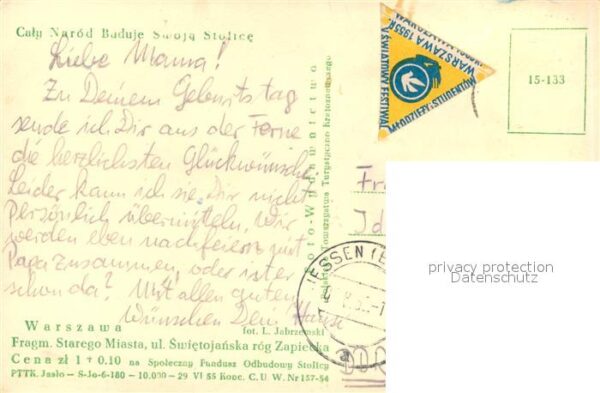 Cały Naród Buduje Swoją Stolicę
Liebe Mama!
Zu Deinem Geburtstag
sende ich Dir aus der Ferne
die herzlichsten Glückwünsche.
Leider kann ich sie Dir nicht
persönlich übermitteln. Wir
werden eben nachfeiern mit
Papa zusammen, oder ist er
schon da? Mit allen guten
Wünschen Dein
Warszawa
fot. L. Jabrzemski
Fragm. Starego Miasta, ul. Świętojańska róg Zapiecka
Cena zł 1 + 0.10 na Społeczny Fundusz Odbudowy Stolicy
PTTK. Jasło — S-Jo-6-180 — 10.000 — 29 VI 55 Konc. C. U. W. Nr 157-54
Foto-Wydawnictwo
Towarzystwa Turystyczno Krajoznawczego
WARSZAWA 1955 R.
V ŚWIATOWY FESTIWAL
MŁODZIEŻY I STUDENTÓW
15-133
Fr
Jd
JESSEN (E
a
privacy protection
Datenschutz